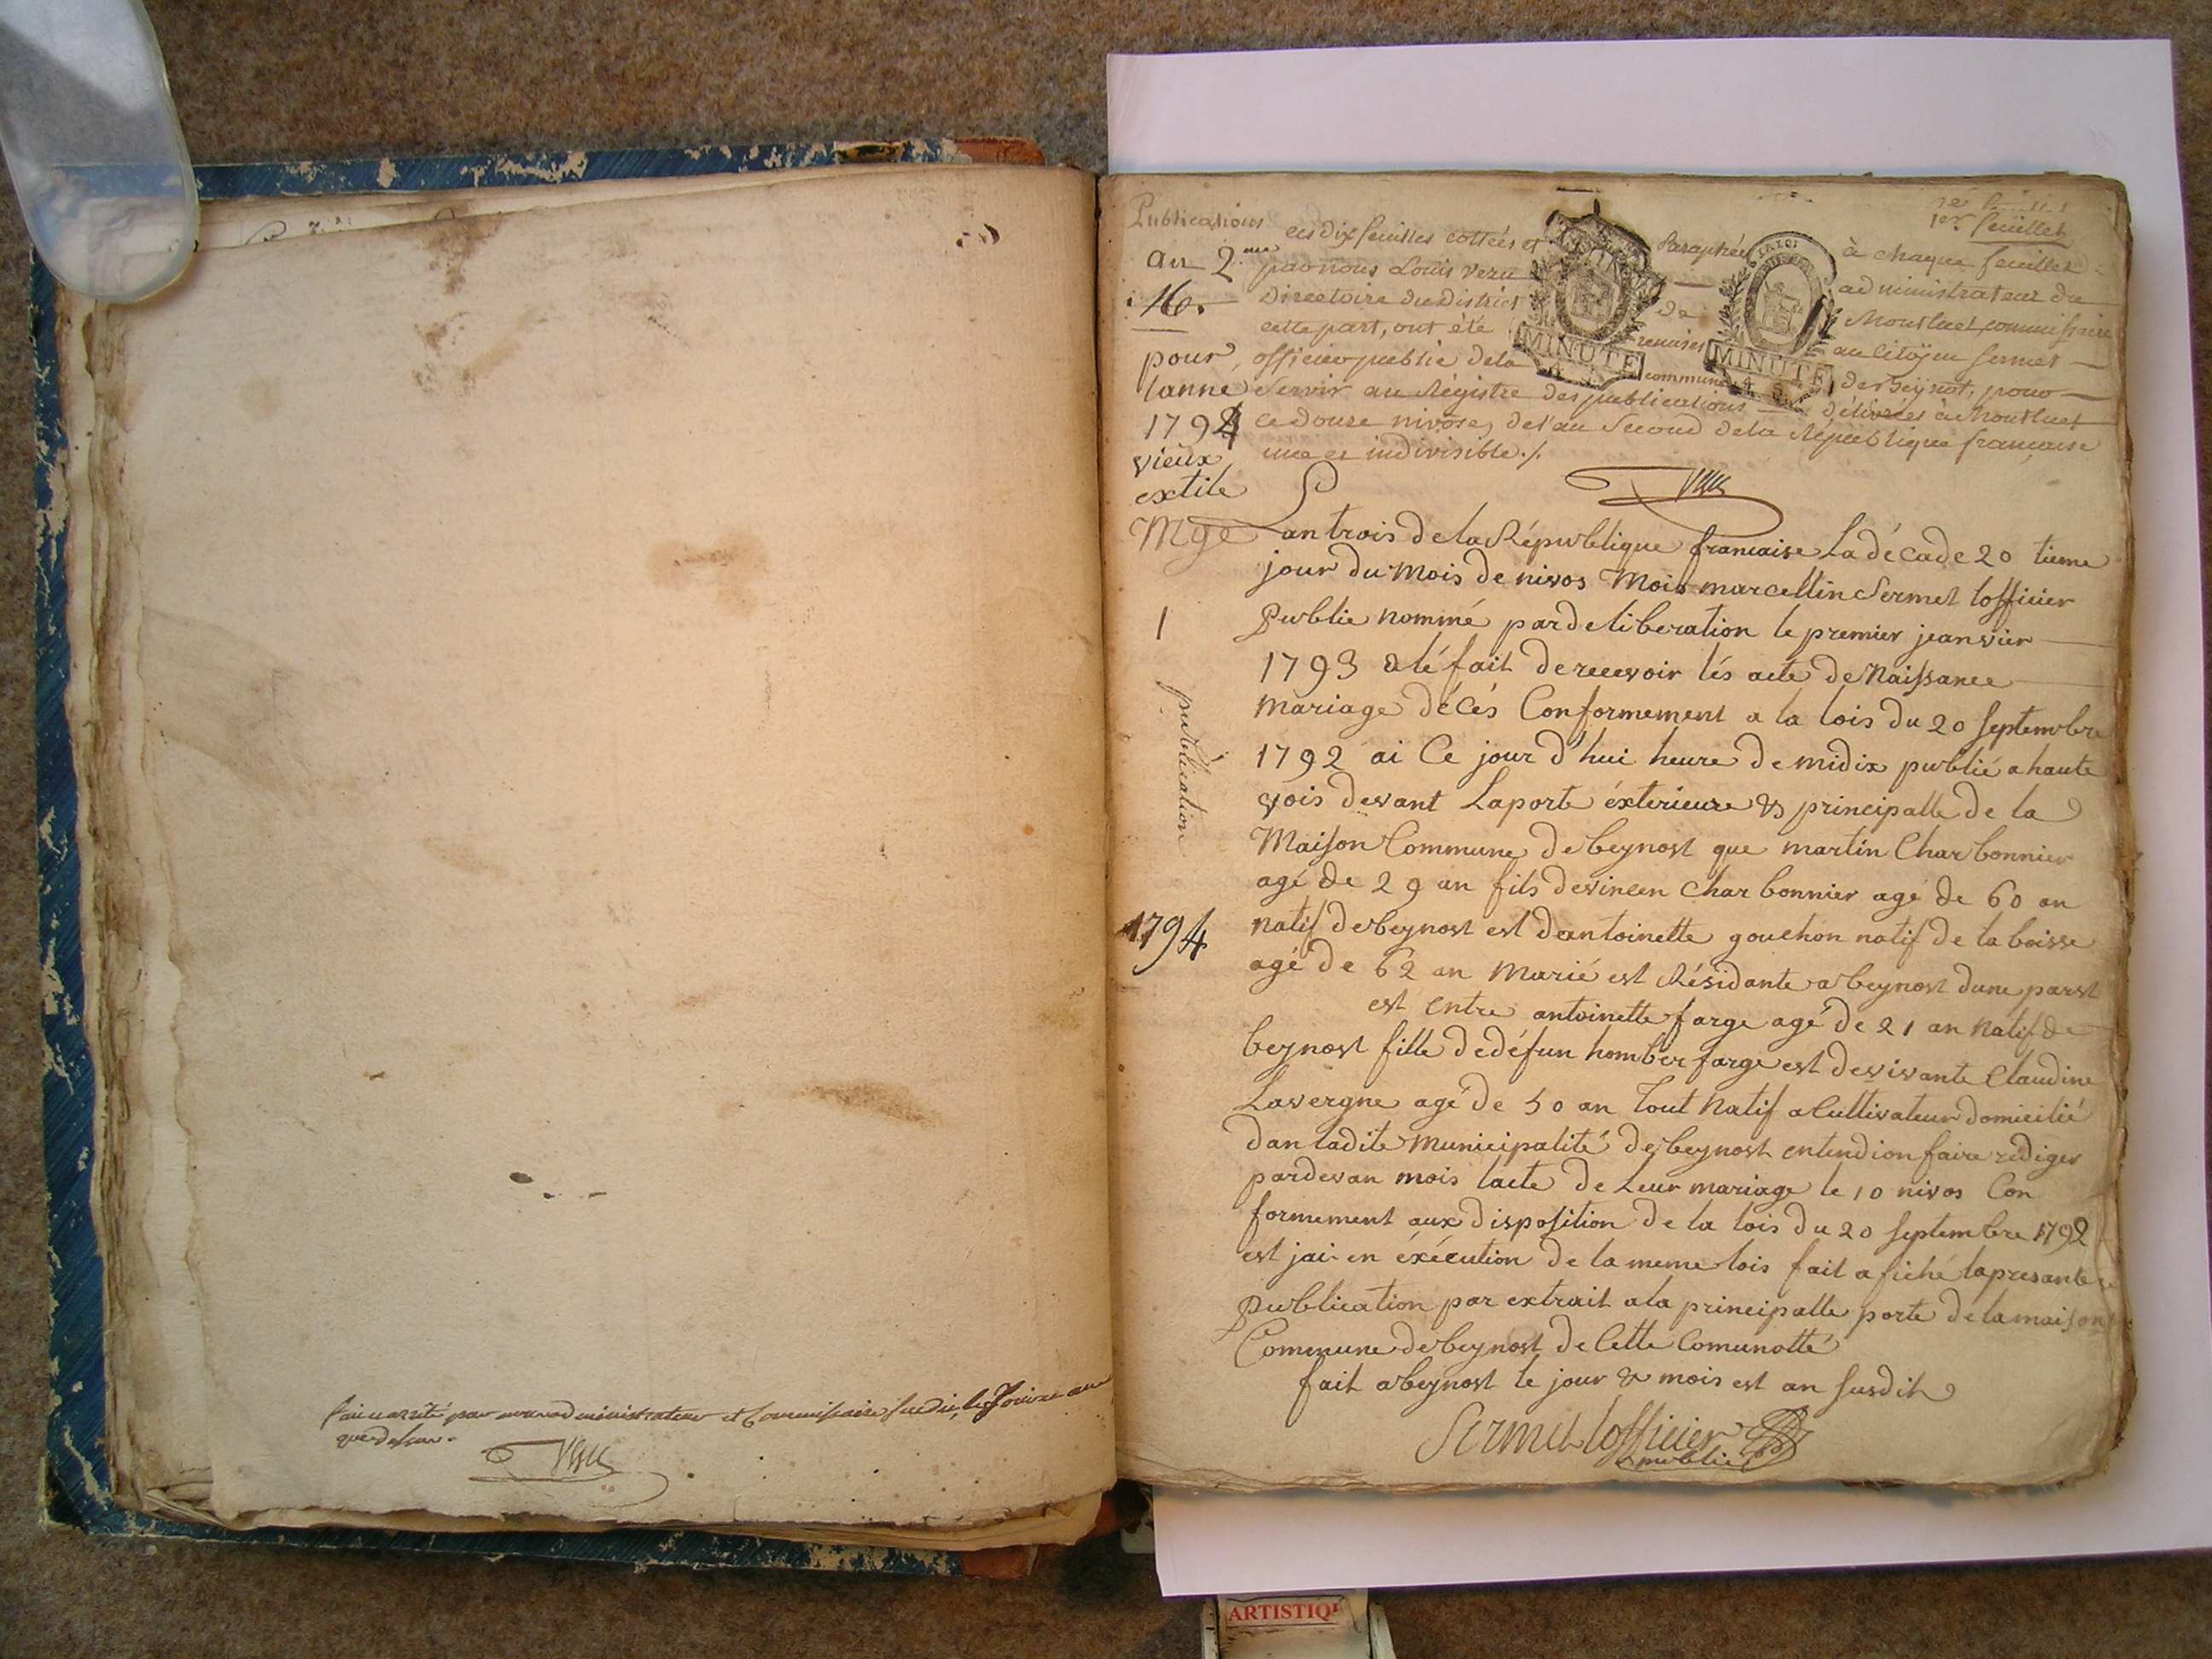 fait
par
administrateur et Commissaire susdit, les jour et an
que dessus.
1er feuillet
Publications
an 2.me
16.
pour
lanne
1794
vieux
extile
Mge
1
publication
1794
ces dix feuilles cottées et paraphées à chaque feuillet
par nous Louis administrateur du
Directoire du District de Montluel, commissaire
cette part, ont été remises au Citoÿen Sermet
officier public de la commune de Beÿnot, pour
servir au Régistre des publications délivrées à Montluel
ce douze nivôse, de l'an Second de la République française
une et indivisible ./.
MINUTE
MINUTE
Lan trois de la République francaise La décade 20 tieme
jour du mois de nivos Mois marcellin Sermet lofficier
Public nommé par deliberation le premier jeanvier
1793 a lé fait de recevoir lés acte de Naissance
Mariage décés Conformement a la lois du 20 septembre
1792 ai Ce jour d'hui heure de midix publié a haute
vois devant Laporte éxterieure & principalle de la
Maison Commune de beynost que martin Charbonnier
agé de 29 an fils de vincen Charbonnier agé de 60 an
natif de beynost est dantoinette gouchon natif de la boisse
agé de 62 an Marié est Résidante a beynost dune parst
est Entre antoinette farge agé de 21 an Natif de
beynost fille de défun homber farge est de vivante Claudine
Lavergne agé de 50 an Tout Natif a Cultivateur domicilié
dan ladite municipalité de beynost entendion faire rédiger
pardevan mois lacte de Leur mariage le 10 nivos Con
formement aux disposition de la lois du 20 septembre 1792
est jai en éxécution de la meme lois fait afiché lapresante
publication par extrait a la principalle porte de la maison
Commune de beynost de Cette Comunotté
fait a beynost le jour & mois est an susdit
Sermet lofficier
public
ARTISTIQ